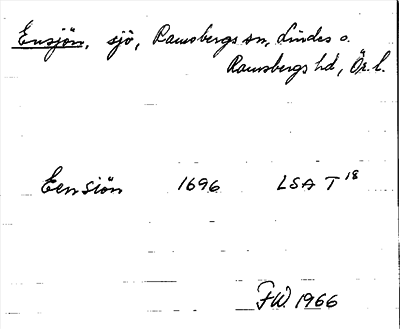 Ensjön, sjö, Ramsbergs sn, Lindes o.
Ramsbergs hd, Ör. l.
Eensiön 1696 LSA T 18
FW. 1966